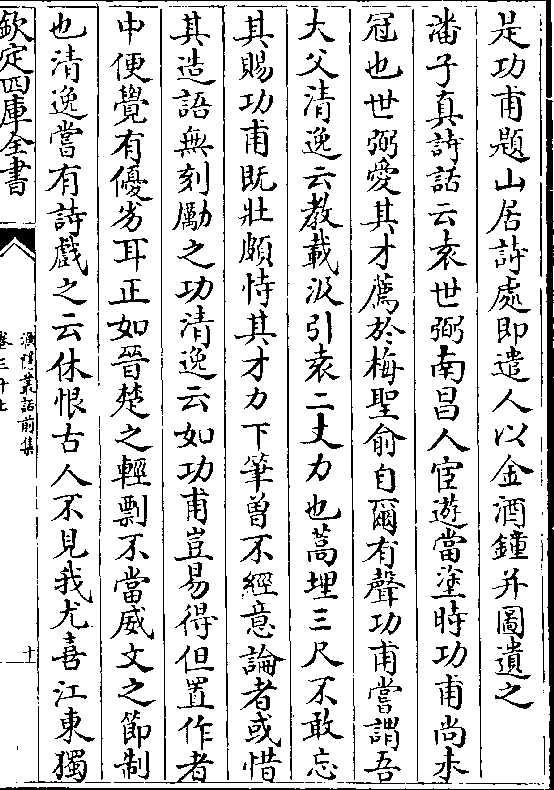 是功甫題山居詩處即遣人以金酒鐘并圖遺之
潘子真詩話云袁世弼南昌人宦遊當塗時功甫尚未
冠也世弼愛其才薦於梅聖俞自爾有聲功甫嘗謂吾
大父清逸云教載汲引袁二丈力也蒿埋三尺不敢忘
其賜功甫既壯頗恃其才力下筆曽不經意論者或惜
其造語無刻勵之功清逸云如功甫豈易得但置作者
中便覺有優劣耳正如晉楚之輕剽不當威文之節制
也清逸嘗有詩戲之云休恨古人不見我尤喜江東獨
欽定四庫全書
漁隱叢話前集
卷三十七
十